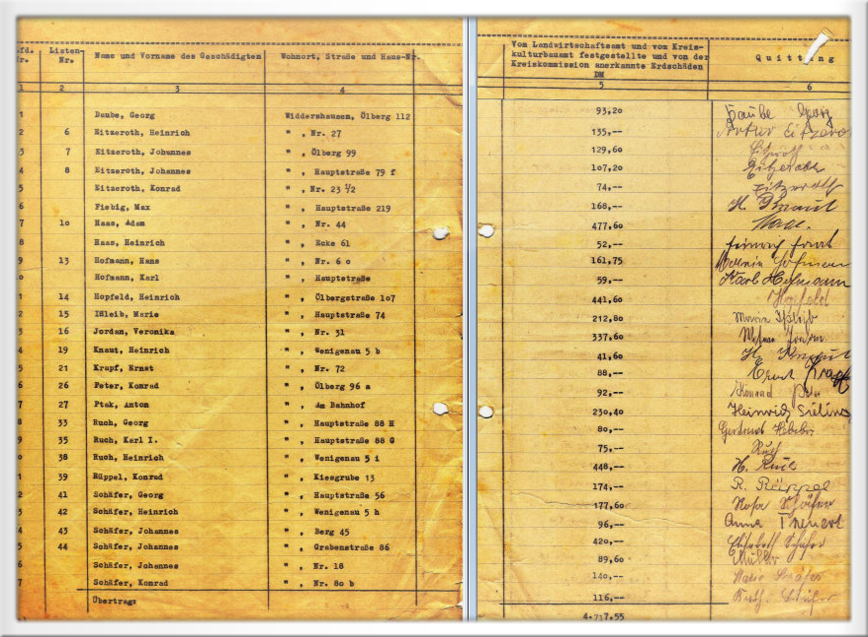 fd. Nr. Listen- Nr. Name und Vorname des Geschädigten Wohnort, Straße und Haus-Nr. Vom Landwirtschaftsamt und vom Kreis-
kulturbauamt festgestellte und von der
Kreiskommission anerkannte Erdschäden
DM Quittung
1 2 3 4 5 6
1 Daube, Georg Widdershausen, Ölberg 112 93,20 Daube Georg
2 6 Eitzeroth, Heinrich " , Nr. 27 135,--
3 7 Eitzeroth, Johannes " , Ölberg 99 129,60
4 8 Eitzeroth, Johannes " , Hauptstraße 79 f 107,20
5 Eitzeroth, Konrad " , Nr. 23 1/2 74,--
6 Fiebig, Max " , Hauptstraße 219 168,--
7 10 Haas, Adam " , Nr. 44 477,60 Haas.
8 Haas, Heinrich " , Ecke 61 52,--
9 13 Hofmann, Hans " , Nr. 6 c 161,75
o Hofmann, Karl " , Hauptstraße 59,-- Karl Hofmann
1 14 Hopfeld, Heinrich " , Ölbergstraße 107 441,60 Hopfeld
2 15 Ißleib, Marie " , Hauptstraße 74 212,80 Marie Ißleib
3 16 Jordan, Veronika " , Nr. 31 337,60
4 19 Knaut, Heinrich " , Wenigenau 5 b 41,60 H. Knaut
5 21 Krapf, Ernst " , Nr. 72 88,-- Ernst Krapf
6 26 Peter, Konrad " , Ölberg 96 a 92,-- Konrad
7 27 Ptak, Anton " , Am Bahnhof 230,40 Heinrich
8 33 Ruch, Georg " , Hauptstraße 88 H 80,-- Gertrud
9 35 Ruch, Karl I. " , Hauptstraße 88 G 75,-- Ruch
o 38 Ruch, Heinrich " , Wenigenau 5 i 448,-- H. Ruch
1 39 Rüppel, Konrad " , Kiesgrube 13 174,-- R. Rüppel
2 41 Schäfer, Georg " , Hauptstraße 56 177,60 Rosa Schäfer
3 42 Schäfer, Heinrich " , Wenigenau 5 h 96,-- Anna
4 43 Schäfer, Johannes " , Berg 45 420,-- Elisabeth Schäfer
5 44 Schäfer, Johannes " , Grabenstraße 86 89,60
6 Schäfer, Johannes " , Nr. 18 140,-- Schäfer
7 Schäfer, Konrad " , Nr. 80 b 116,--
Übertrag: 4.717.55